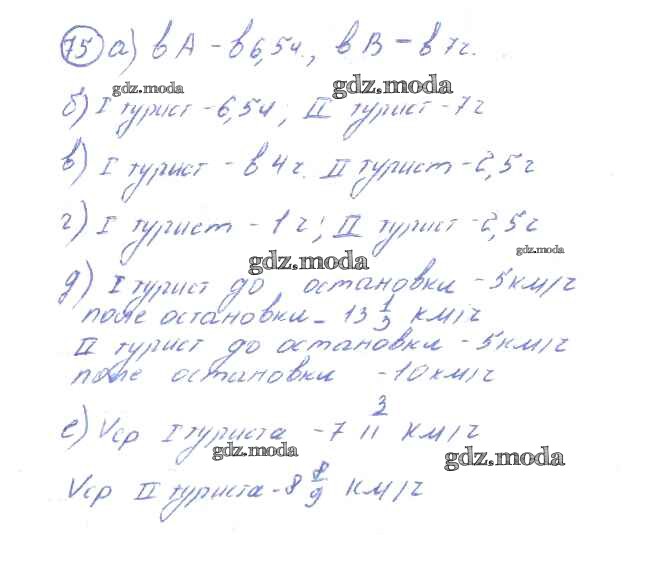 75 а) в А – в 6,5ч., в В – в 7ч.
gdz.moda gdz.moda
б) I турист – 6,5ч; II турист – 7ч
в) I турист – в 4ч. II турист – 2,5ч
г) I турист – 1ч; II турист – 2,5ч
gdz.moda gdz.moda
д) I турист до остановки – 5км/ч
поле остановки – 13 1/3 км/ч
II турист до остановки – 5км/ч
поле остановки – 10км/ч
е) Vср I туриста – 7 3/11 км/ч
gdz.moda gdz.moda
Vср II туриста – 8 8/9 км/ч